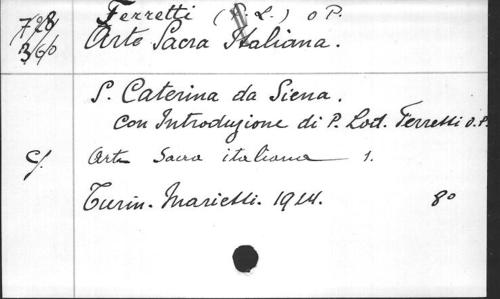 728
360
Ferretti (P. L.) O P.
Arte Sacra Italiana.
S. Caterina da Siena.
con Introduzione di P. Lod. Ferretti O.P.
c/. Arte Sacra italiana 1.
Turin. Marietti. 1914. 8o